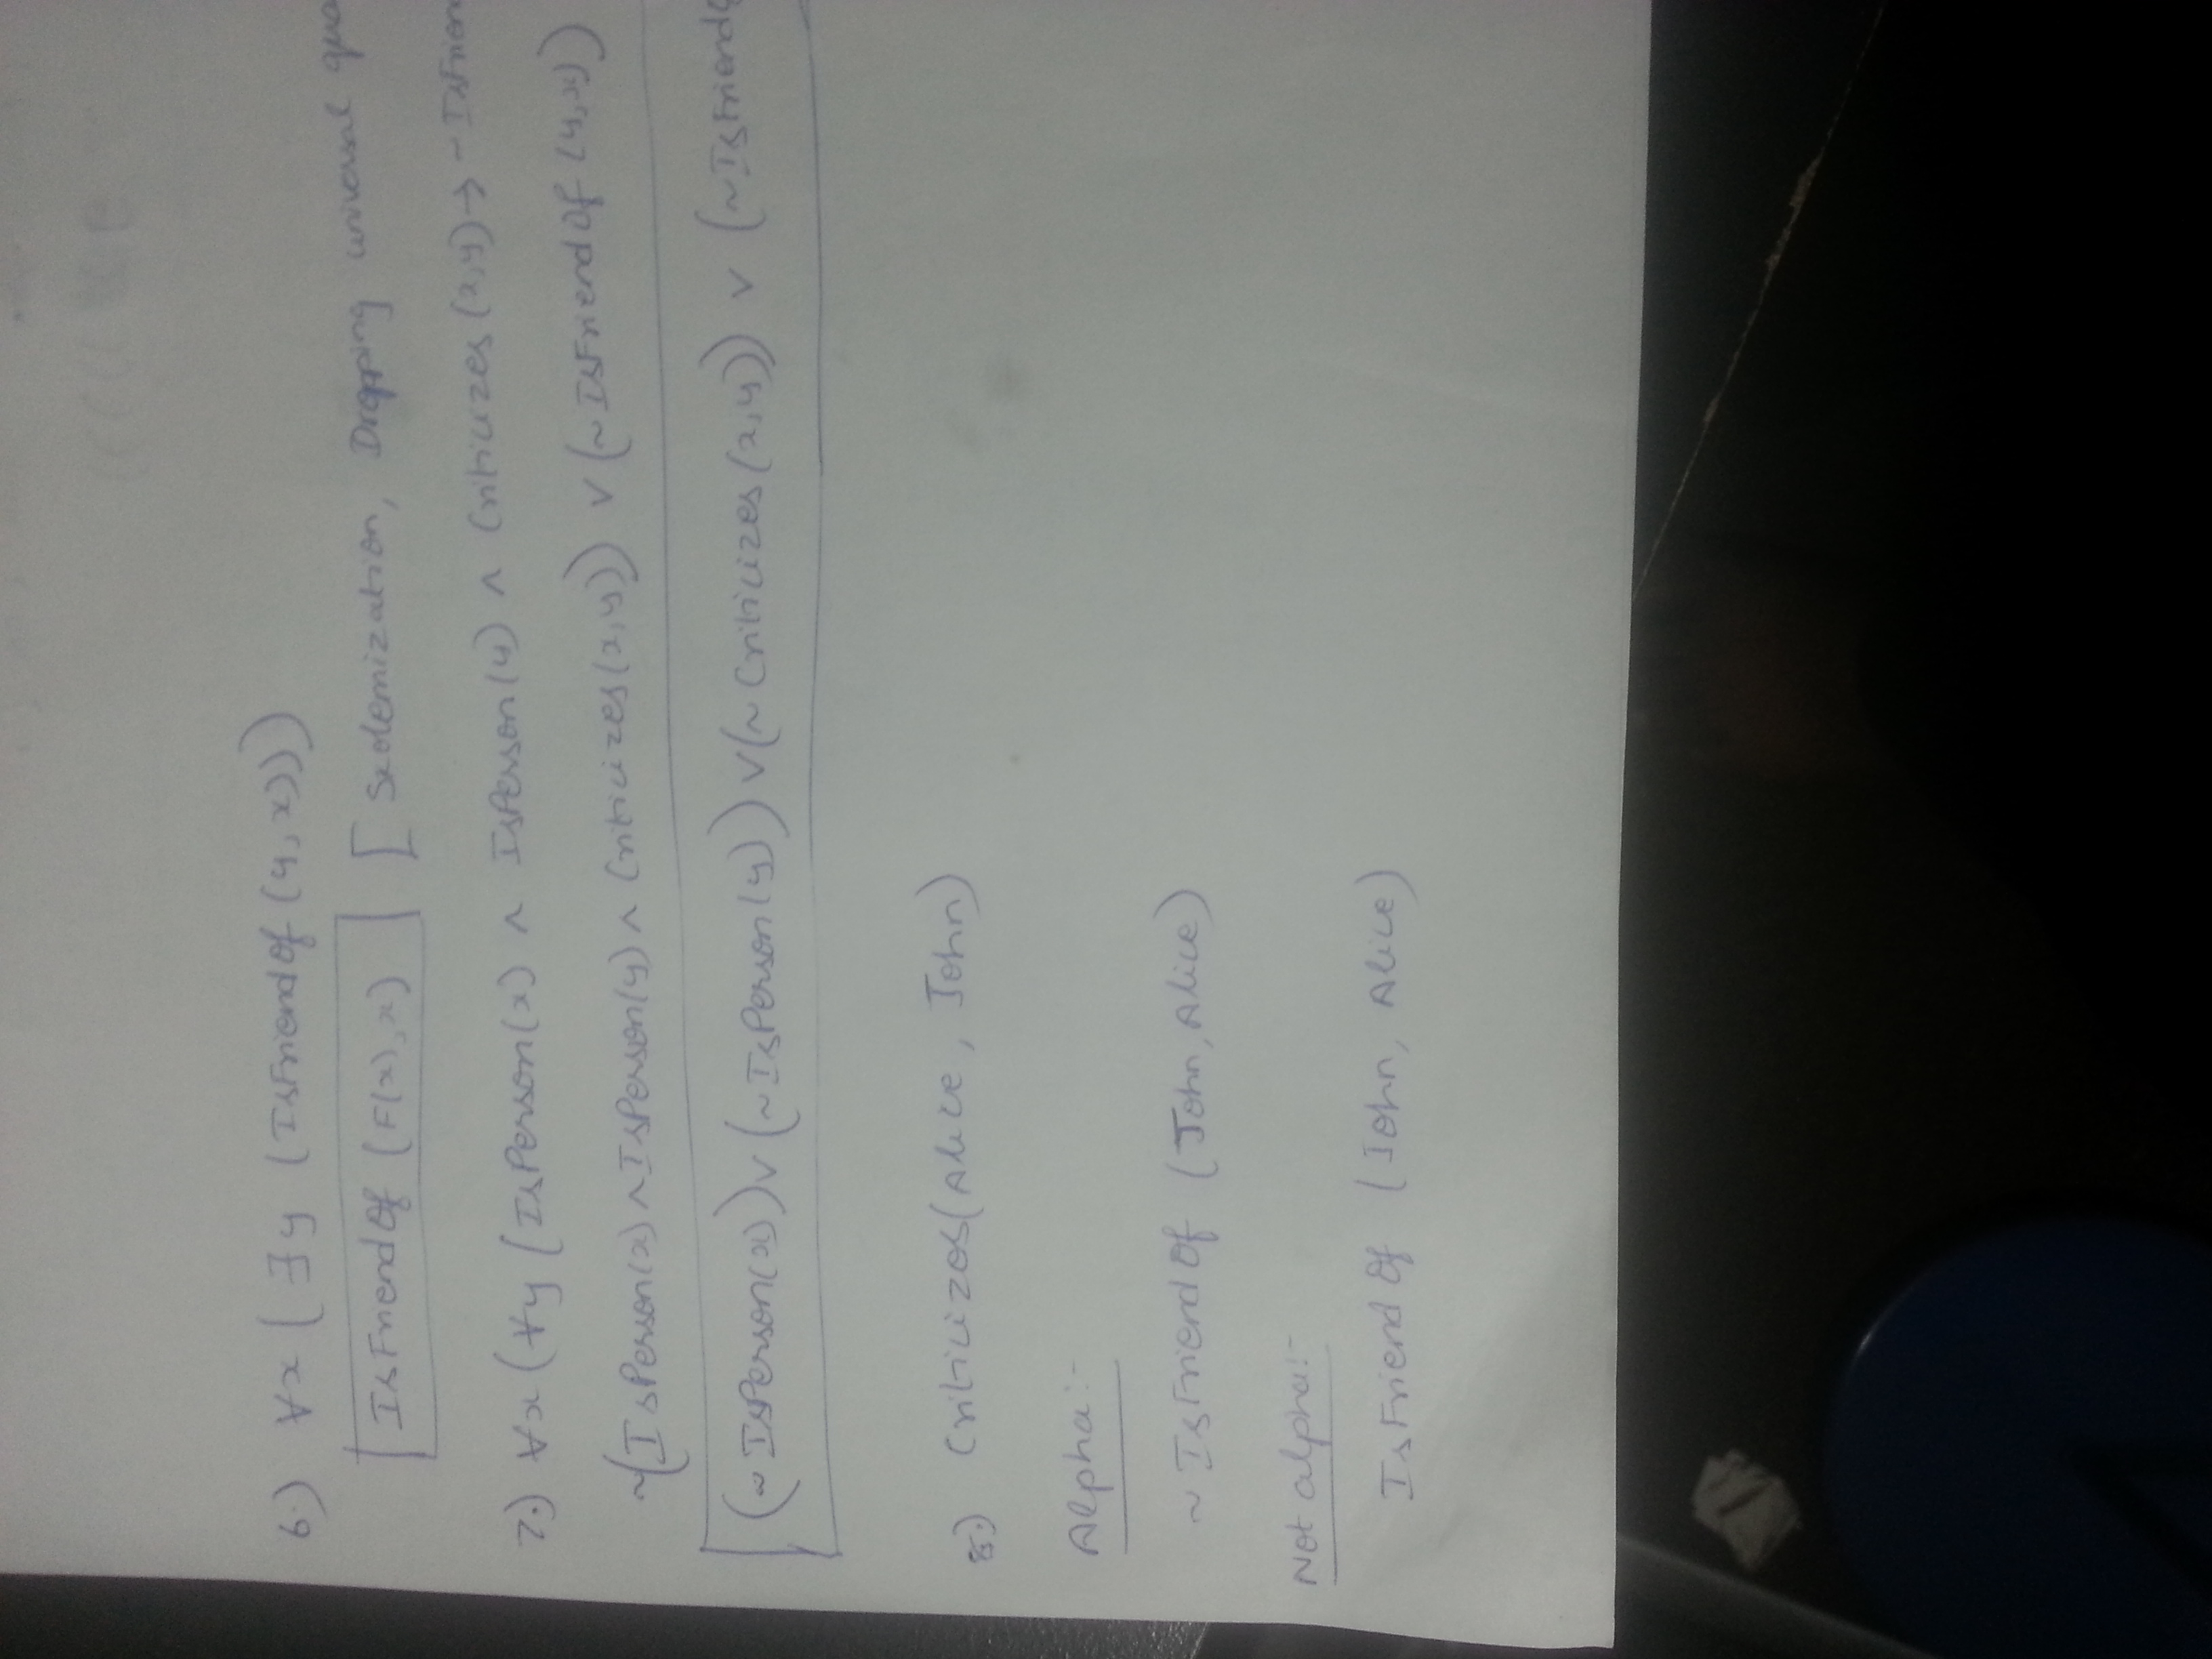 6.) ∀x (∃y (IsFriendOf (y,x)))
IsFriendOf (F(x),x) [Skolemization, Dropping universal
7.) ∀x (∀y (IsPerson(x) ∧ IsPerson(y) ∧ Criticizes(x,y) → ~IsFrien
~(IsPerson(x) ∧ IsPerson(y) ∧ Criticizes(x,y)) ∨ (~IsFriendOf (y,x))
(~IsPerson(x)) ∨ (~IsPerson(y)) ∨ (~Criticizes(x,y)) ∨ (~IsFriend
8.) Criticizes(Alice, John)
Alpha:-
~IsFriendOf (John, Alice)
Not alpha:-
IsFriendOf (John, Alice)